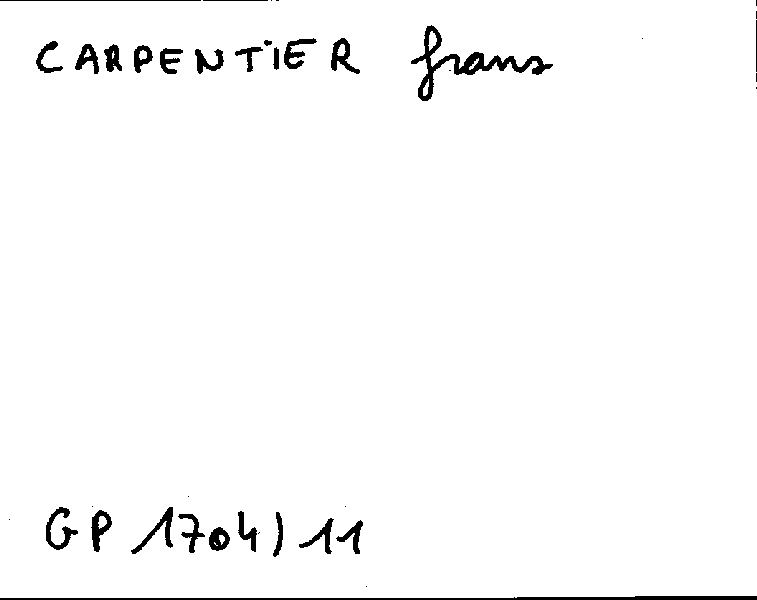 CARPENTIER frans
GP 1704) 11